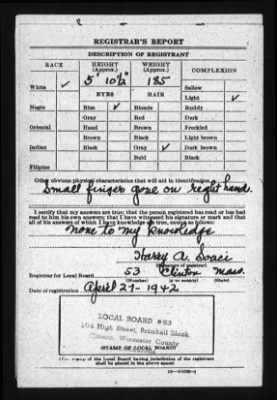 REGISTRAR'S REPORT
DESCRIPTION OF REGISTRANT
RACE HEIGHT (Approx.) WEIGHT (Approx.) COMPLEXION
5' 10½" 185 Sallow
White ✓ EYES HAIR Light ✓
Negro Blue ✓ Blonde Ruddy
Gray Red Dark
Oriental Hazel Brown Freckled
Brown Black Light brown
Indian Black Gray ✓ Dark brown
Bald Black
Filipino
Other obvious physical characteristics that will aid in identification
Small finger gone on right hand
I certify that my answers are true; that the person registered has read or has had
read to him his own answers; that I have witnessed his signature or mark and that
all of his answers of which I have knowledge are true, except as follows:
none to my knowledge
Harry A.
(Signature of registrar)
Registrar for Local Board 53 Clinton Mass.
(Number) (City or county) (State)
Date of registration April 27-1942
LOCAL BOARD #53
104 High Street, Block
Clinton, Worcester County
(STAMP OF LOCAL BOARD)
(The stamp of the Local Board having jurisdiction of the registrant
shall be placed in the above space)